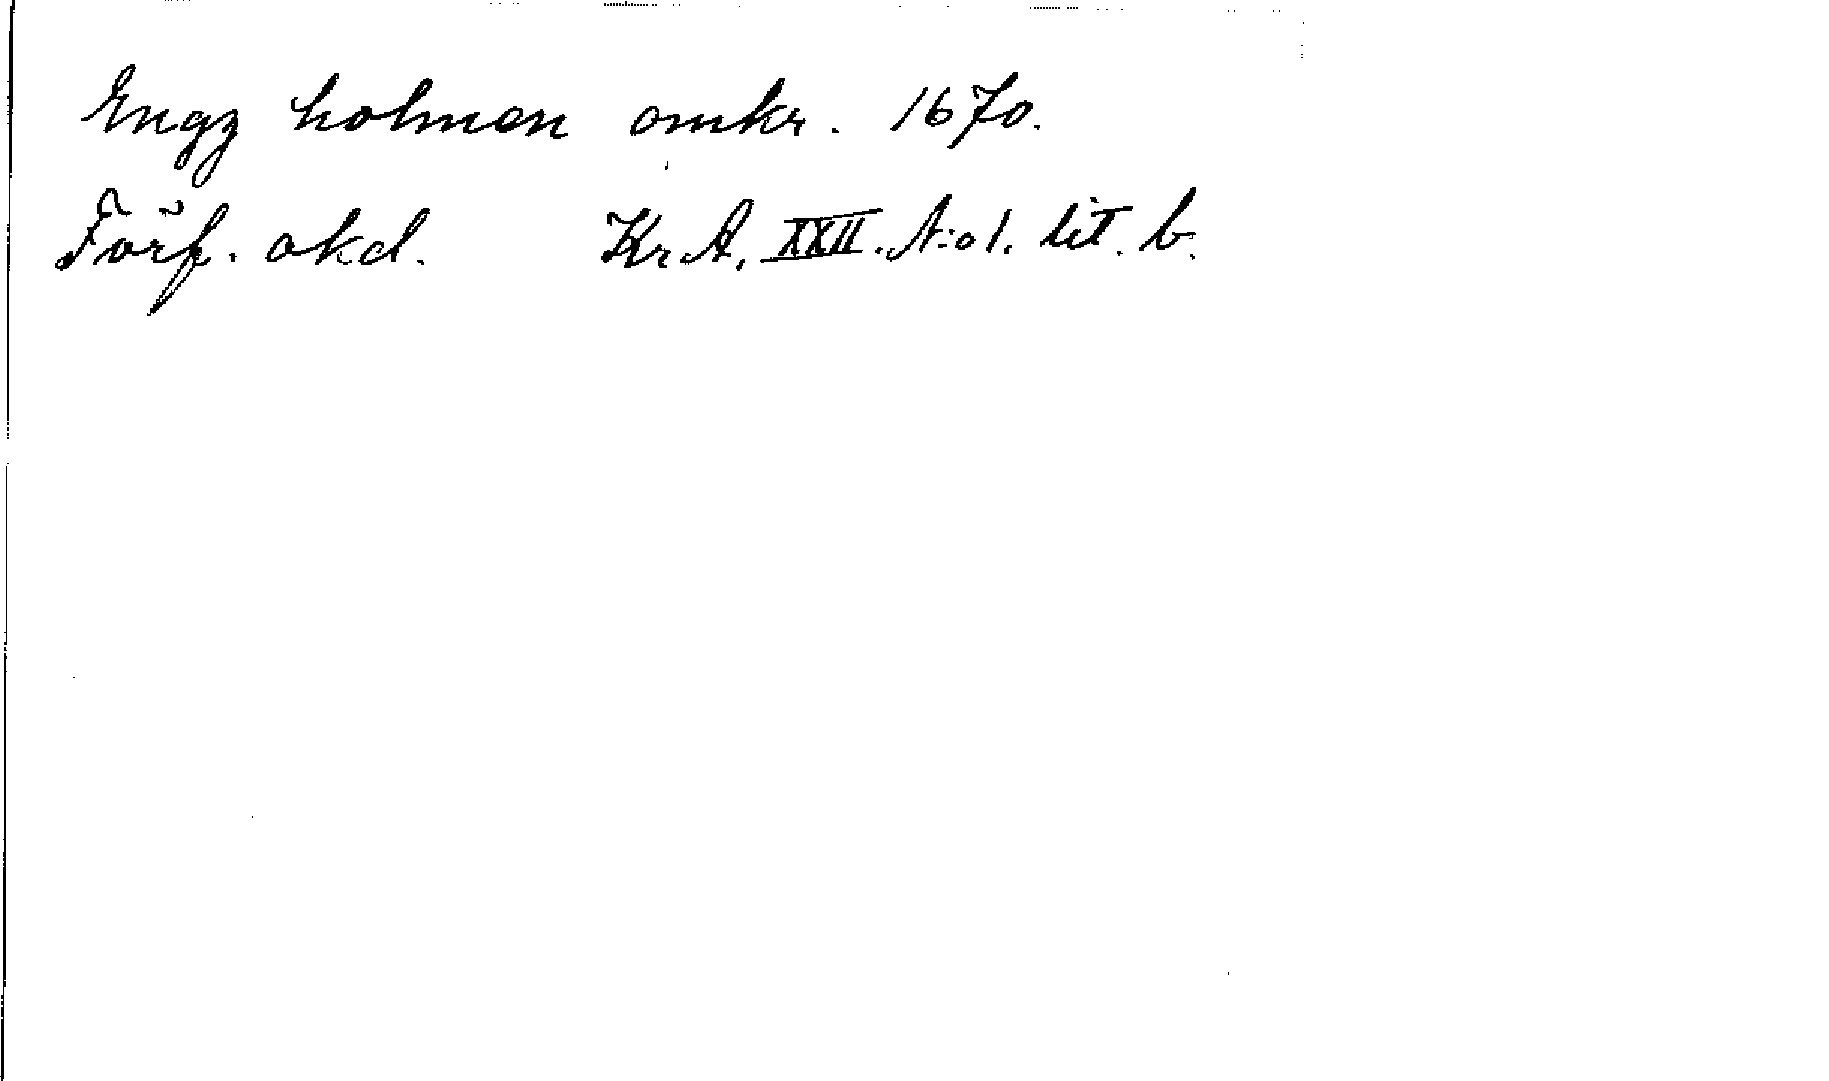 Engz holmen omkr. 1670.
Förf. okd. Kr A. XXII. N:o 1. lit. b.